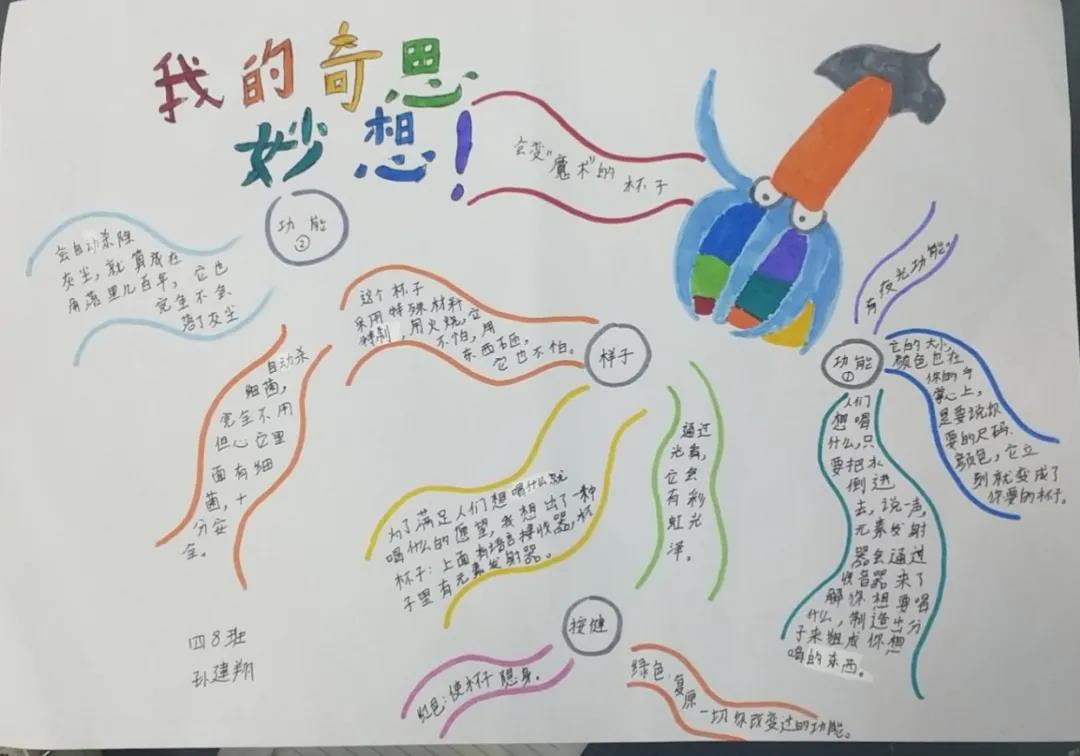 我的奇思
妙想！
会变“魔术”的杯子
功能
②
会自动杀除
灰尘，就算放在
角落里几百年，它也
完全不会
落了灰尘
自动杀
细菌，
完全不用
但心它里
面有细
菌，十
分安
全。
样子
这个杯子
采用特殊材料
特制，用火烧，它
不怕，用
东西石匝，
它也不怕。
为了满足人们想喝什么就
喝什么的愿望，我想出了一种
杯子：上面有语音接收器，杯
子里有元素发射器。
通过
光看，
它会
有彩
虹光
泽。
功能
①
有夜光功能。
它的大小，
颜色也在
你的手
掌心上，
是要说你
要的尺码、
颜色，它立
刻就变成了
你要的杯子。
人们
想喝
什么，只
要把水
倒进
去，说一声，
元素发射
器会通过
收音器来了
解你想要喝
什么，制造出分
子来组成你想
喝的东西。
按健
红色：使杯子隐身。
绿色：复原
一切你改变过的功能。
四8班
孙建翔